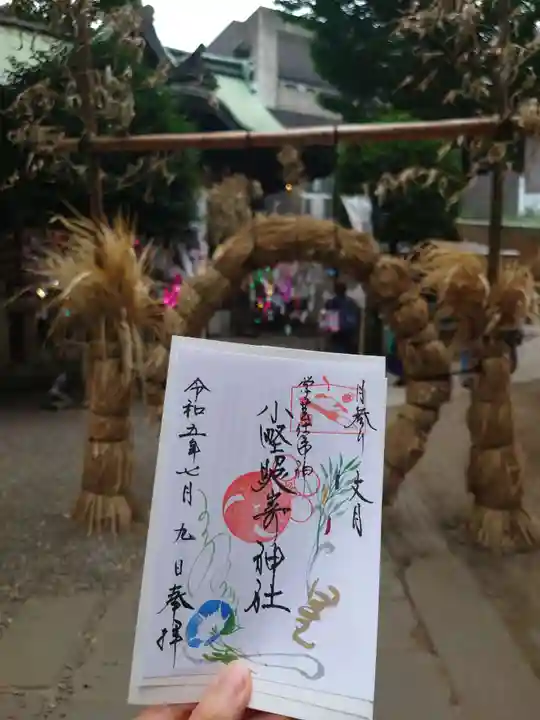 月参り 文月
学芸仕事の神
小野照崎神社
令和五年七月九日奉拝